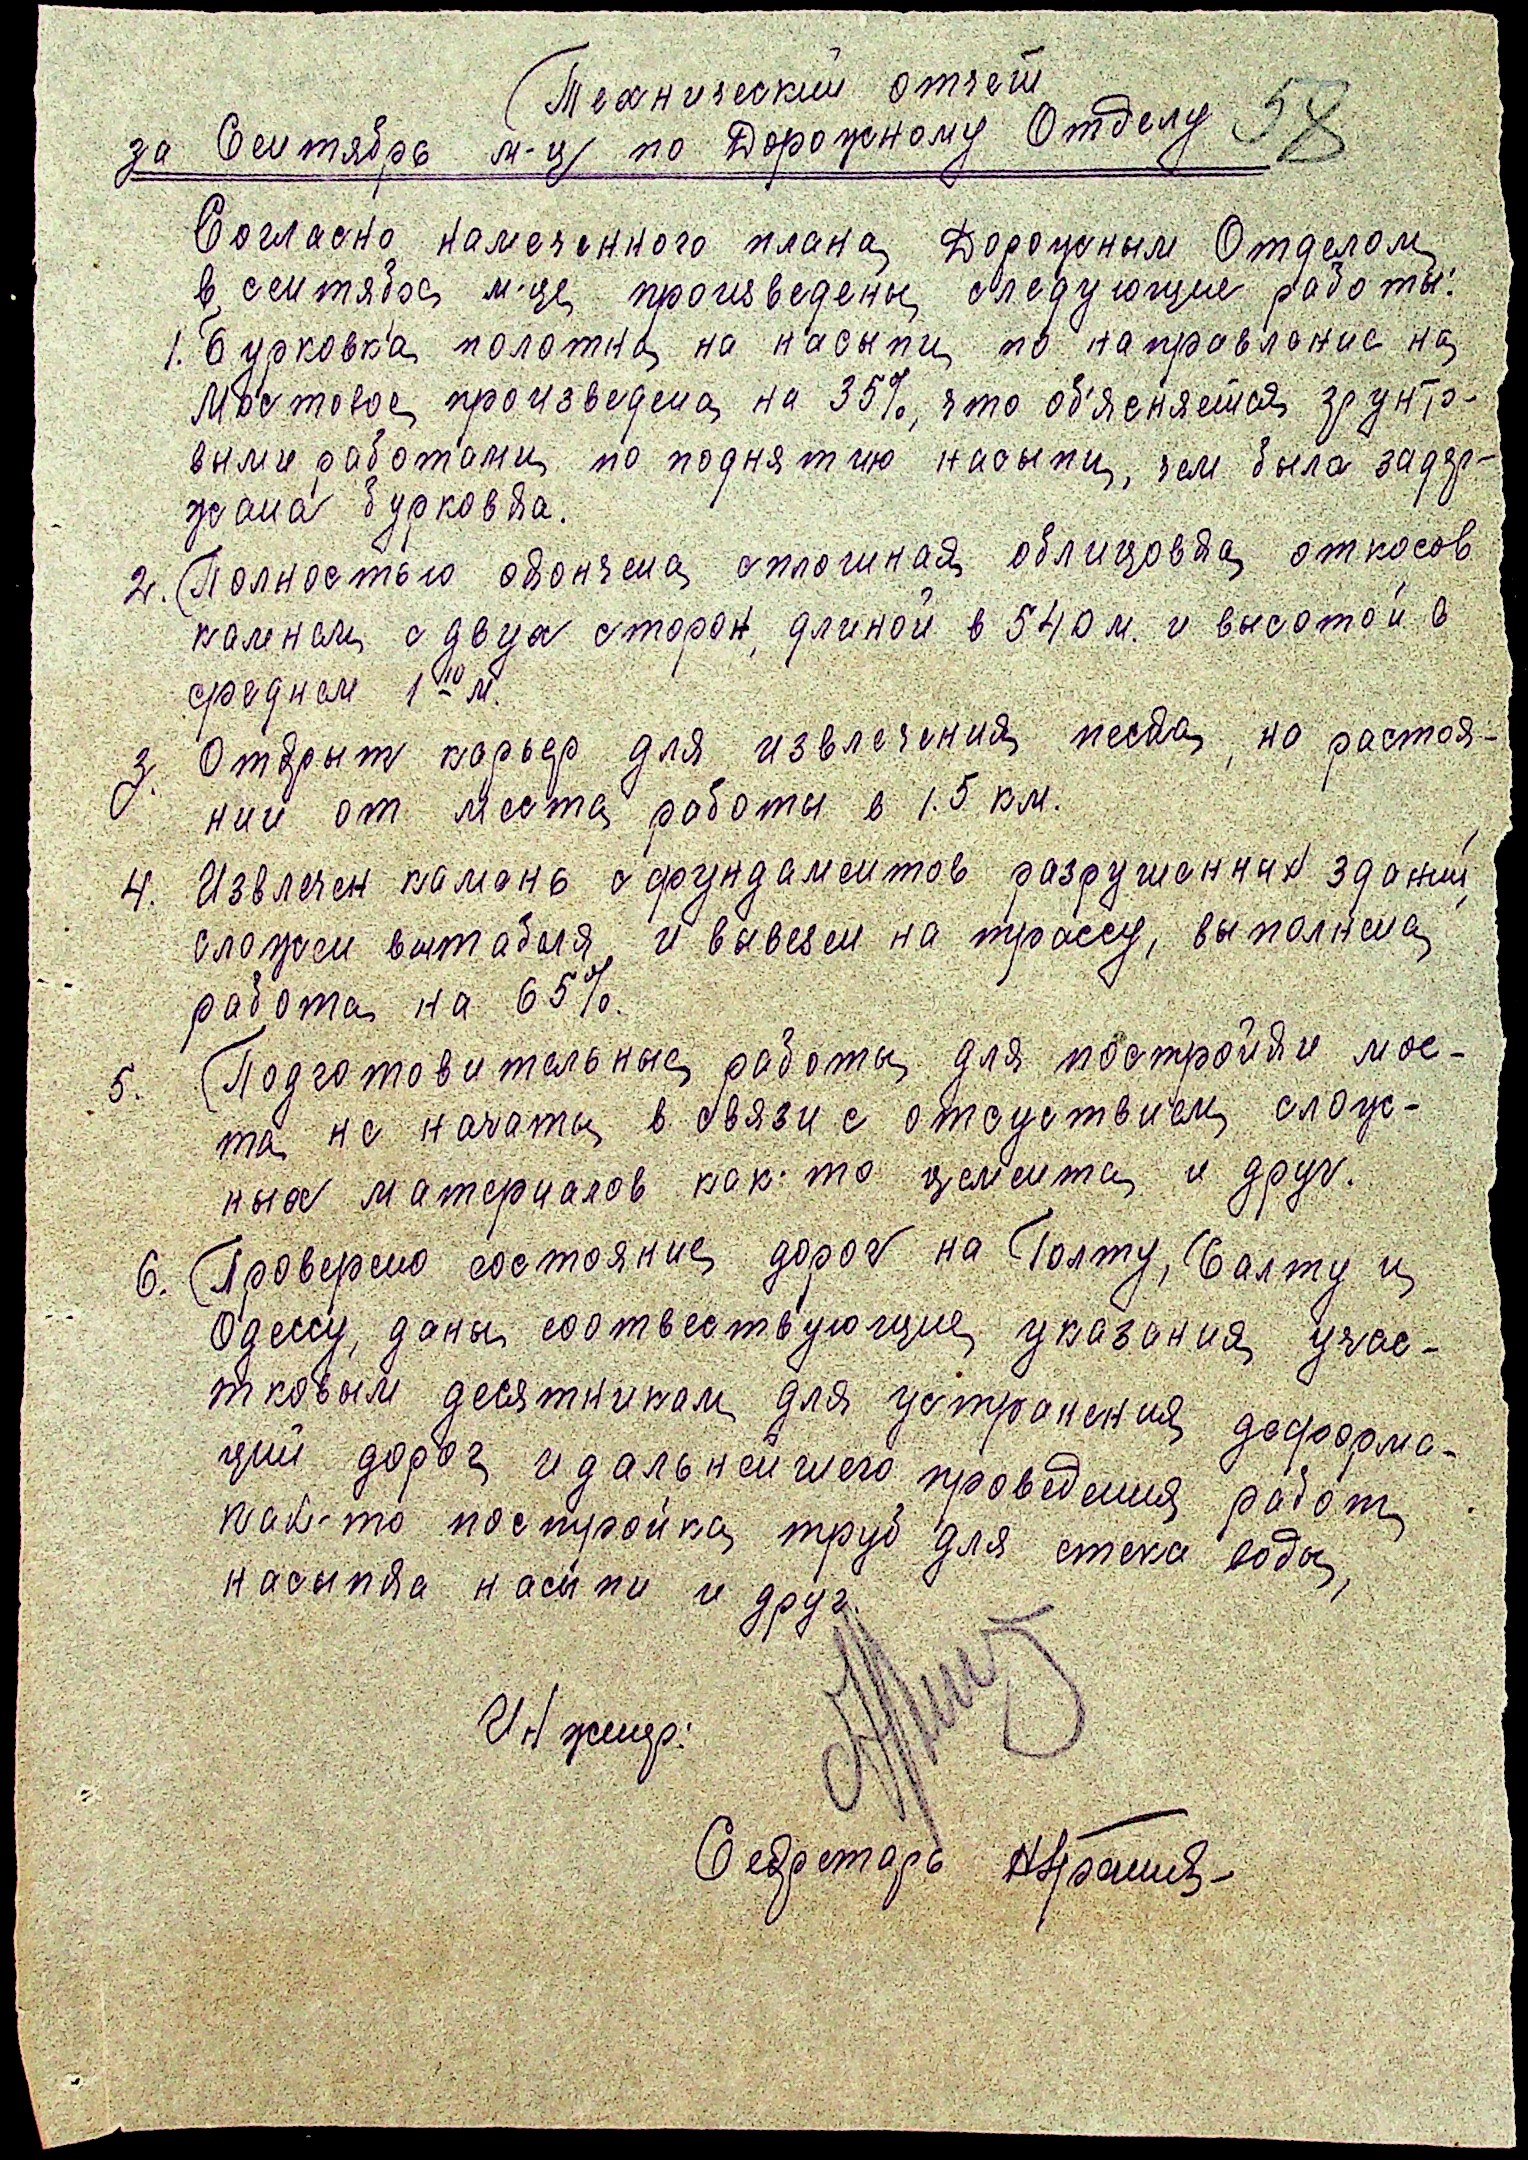 Технический отчет
за Сентябрь м-ц по Дорожному Отделу 58
Согласно намеченного плана, Дорожным Отделом
в сентябре м-це произведены следующие работы:
1. Бурковка полотна на насыпи по направление на
Мостовое, произведена на 35%, что об'ясняется грунто-
выми работами по поднятию насыпи, чем была задер-
жана бурковка.
2. Полностью окончена сплошная облицовка откосов
камнем с двух сторон, длиной в 540 м. и высотой в
среднем 1 10 м.
3. Открыт карьер для извлечения песка, на растоя-
нии от места работы в 1.5 км.
4. Извлечен камень с фундаментов разрушенных зданий,
сложен в штабеля и вывезен на трассу, выполнена
работа на 65%.
5. Подготовительные работы для постройки мос-
та не начаты в связи с отсуствием слож-
ных материалов как-то цемента и друг.
6. Проверено состояние дорог на Голту, Балту и
Одессу, даны соотвествующие указания учас-
тковым десятникам для устранения деформа-
ций дорог и дальнейшего проведения работ
как-то постройка труб для стека воды,
насыпка насыпи и друг.
Инженер:
Секретарь